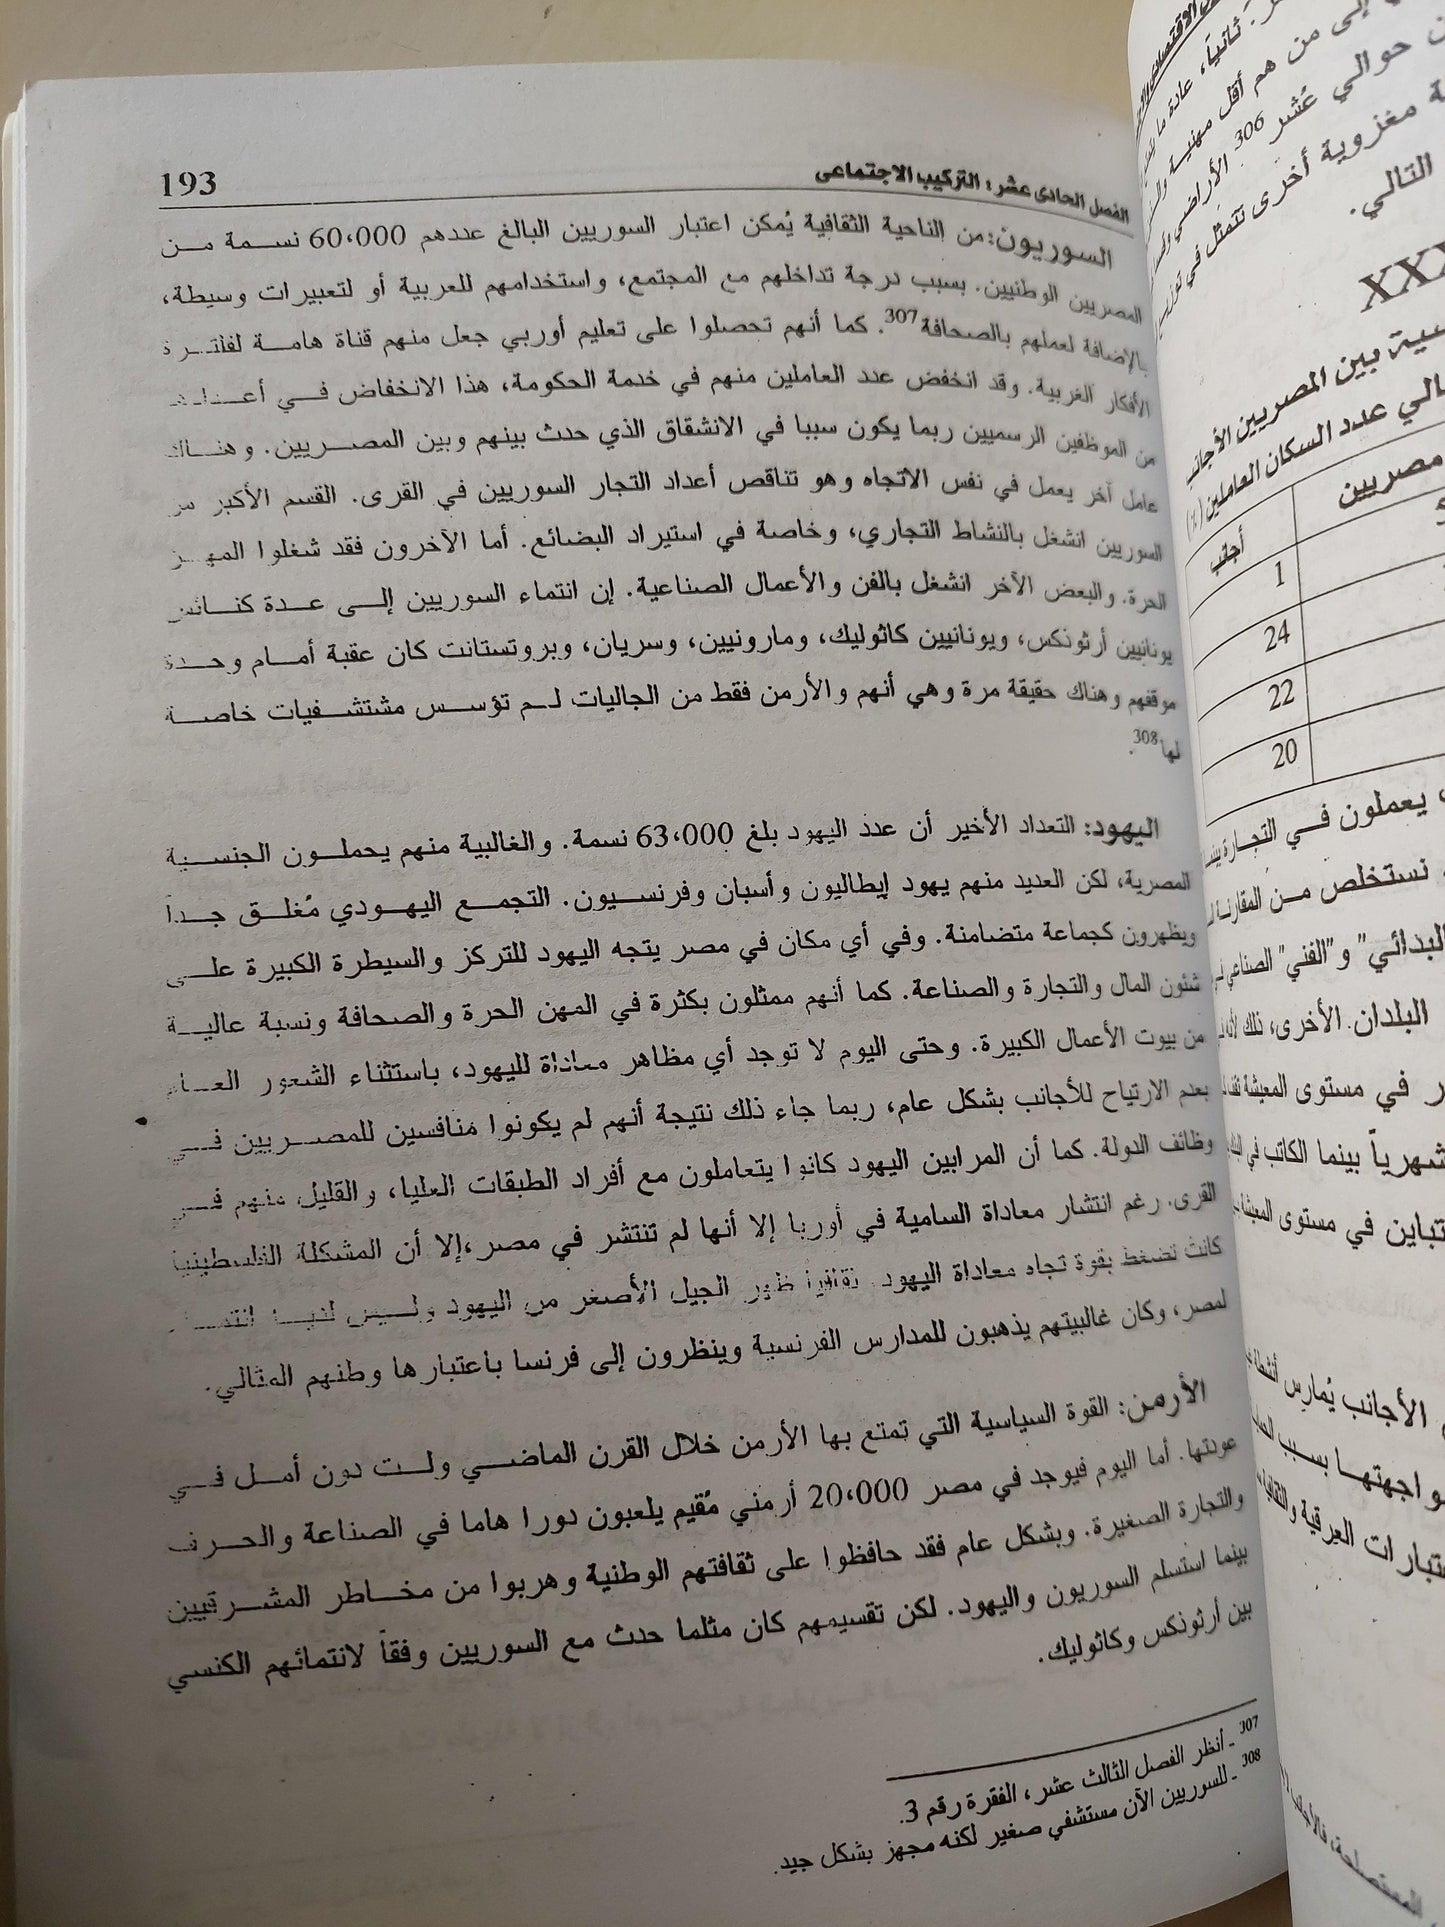 الفصل الحادى عشر: التركيب الاجتماعى
193
السوريون: من الناحية الثقافية يُمكن اعتبار السوريين البالغ عددهم 60،000 نسمة من
المصريين الوطنيين. بسبب درجة تداخلهم مع المجتمع، واستخدامهم للعربية أو لتعبيرات وسيطة،
بالإضافة لعملهم بالصحافة307. كما أنهم تحصلوا على تعليم أوربي جعل منهم قناة هامة لفلترة
الأفكار الغربية. وقد انخفض عدد العاملين منهم في خدمة الحكومة، هذا الانخفاض في أعدادهم
من الموظفين الرسميين ربما يكون سببا في الانشقاق الذي حدث بينهم وبين المصريين. وهناك
عامل آخر يعمل في نفس الاتجاه وهو تناقص أعداد التجار السوريين في القرى. القسم الأكبر من
السوريين انشغل بالنشاط التجاري، وخاصة في استيراد البضائع. أما الآخرون فقد شغلوا المهن
الحرة. والبعض الآخر انشغل بالفن والأعمال الصناعية. إن انتماء السوريين إلى عدة كنائس
يونانيين أرثونكس، ويونانيين كاثوليك، ومارونيين، وسريان، وبروتستانت كان عقبة أمام وحدة
موقفهم وهناك حقيقة مرة وهي أنهم والأرمن فقط من الجاليات لم تؤسس مشتشفيات خاصة
لها308.
اليهود: التعداد الأخير أن عدد اليهود بلغ 63،000 نسمة. والغالبية منهم يحملون الجنسية
المصرية، لكن العديد منهم يهود إيطاليون وأسبان وفرنسيون. التجمع اليهودي مُغلق جداً
ويظهرون كجماعة متضامنة. وفي أي مكان في مصر يتجه اليهود للتركز والسيطرة الكبيرة على
شئون المال والتجارة والصناعة. كما أنهم ممثلون بكثرة في المهن الحرة والصحافة ونسبة عالية
من بيوت الأعمال الكبيرة. وحتى اليوم لا توجد أي مظاهر معاداة لليهود، باستثناء الشعور العام
بعدم الارتياح للأجانب بشكل عام، ربما جاء ذلك نتيجة أنهم لم يكونوا منافسين للمصريين في
وظائف الدولة. كما أن المرابين اليهود كانوا يتعاملون مع أفراد الطبقات العليا، والقليل منهم في
القرى. رغم انتشار معاداة السامية في أوربا إلا أنها لم تنتشر في مصر،إلا أن المشكلة الفلسطينية
كانت تضغط بقوة تجاه معاداة اليهود. ثقافيا ظهر الجيل الأصغر من اليهود وليس لديه انتماء
لمصر، وكان غالبيتهم يذهبون للمدارس الفرنسية وينظرون إلى فرنسا باعتبارها وطنهم المثالي.
الأرمن: القوة السياسية التي تمتع بها الأرمن خلال القرن الماضي ولت دون أمل في
عودتها. أما اليوم فيوجد في مصر 20،000 أرمني مُقيم يلعبون دورا هاما في الصناعة والحرف
والتجارة الصغيرة. وبشكل عام فقد حافظوا على ثقافتهم الوطنية وهربوا من مخاطر المشرقيين
بينما استسلم السوريون واليهود. لكن تقسيمهم كان مثلما حدث مع السوريين وفقاً لانتمائهم الكنسي
بين أرثونكس وكاثوليك.
307 ـ أنظر الفصل الثالث عشر، الفقرة رقم 3.
308 ـ للسوريين الآن مستشفي صغير لكنه مجهز بشكل جيد.
ثانياً، عادة ما
إلى من هم أقل مهنية
حوالي عُشر 306 الأراضي
مغزوية أخرى تتمثل في
التالي.
XXX
بين المصريين الأجانب
عدد السكان العاملين (%)
مصريين
أجانب
1
24
22
20
يعملون في التجارة بينما
نستخلص من المقارنة
البدائي" و"الفني" الصناعي
البلدان الأخرى، ذلك
في مستوى المعيشة
شهرياً بينما الكاتب في
تباين في مستوى المعيشة
الأجانب يُمارس أنشطة
واجهتها بسبب
العرقية والثقافية